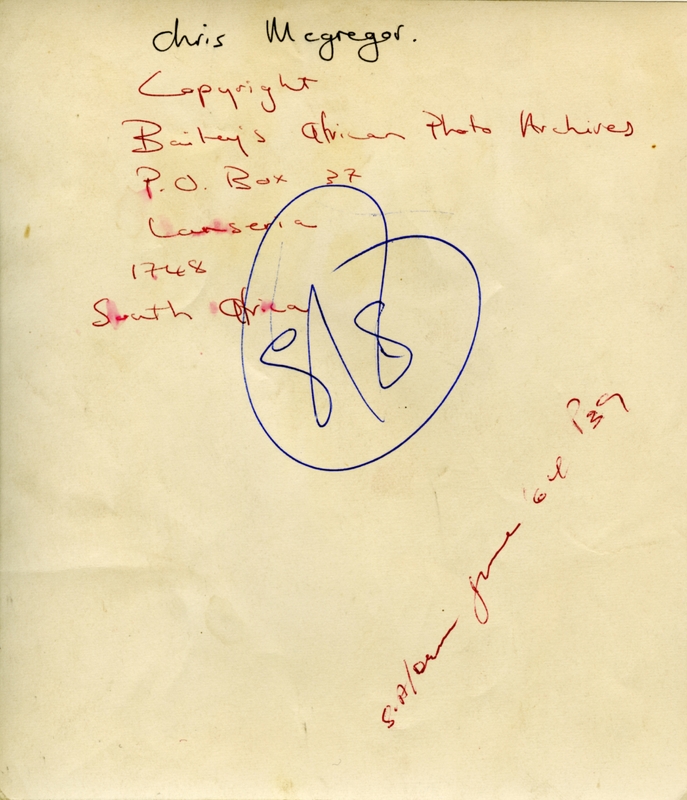 Chris Mcgregor.
Copyright
Bailey's African Photo Archives
P.O. Box 37
Lanseria
1748
South Africa
8/8
June P39